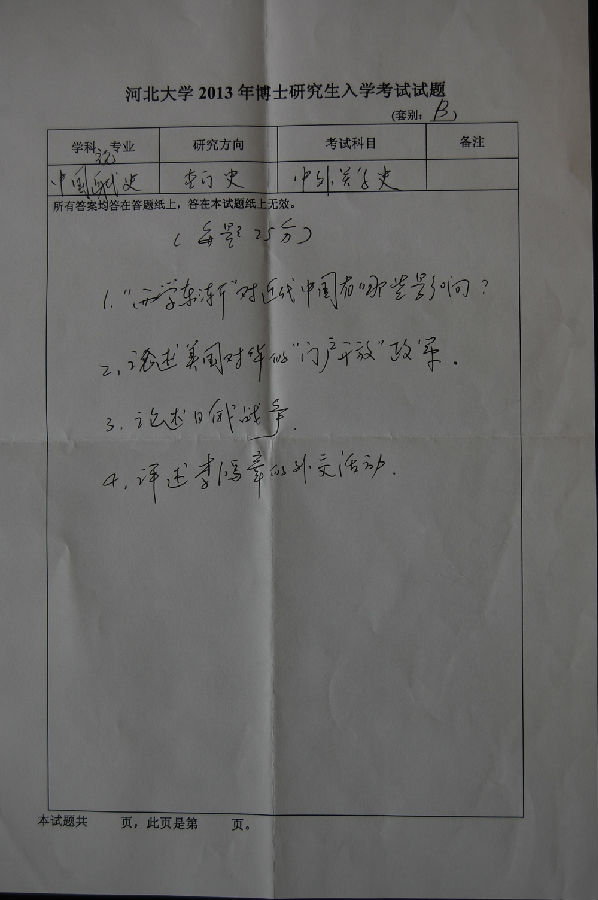 河北大学 2013 年博士研究生入学考试试题
(套别: B)
学科、专业 研究方向 考试科目 备注
中国近现代史 专门史 中外关系史
所有答案均答在答题纸上，答在本试题纸上无效。
(每题25分)
1. “西学东渐”对近代中国有哪些影响?
2. 论述美国对华的“门户开放”政策.
3. 论述日俄战争.
4. 评述李鸿章的外交活动.
本试题共 页，此页是第 页。